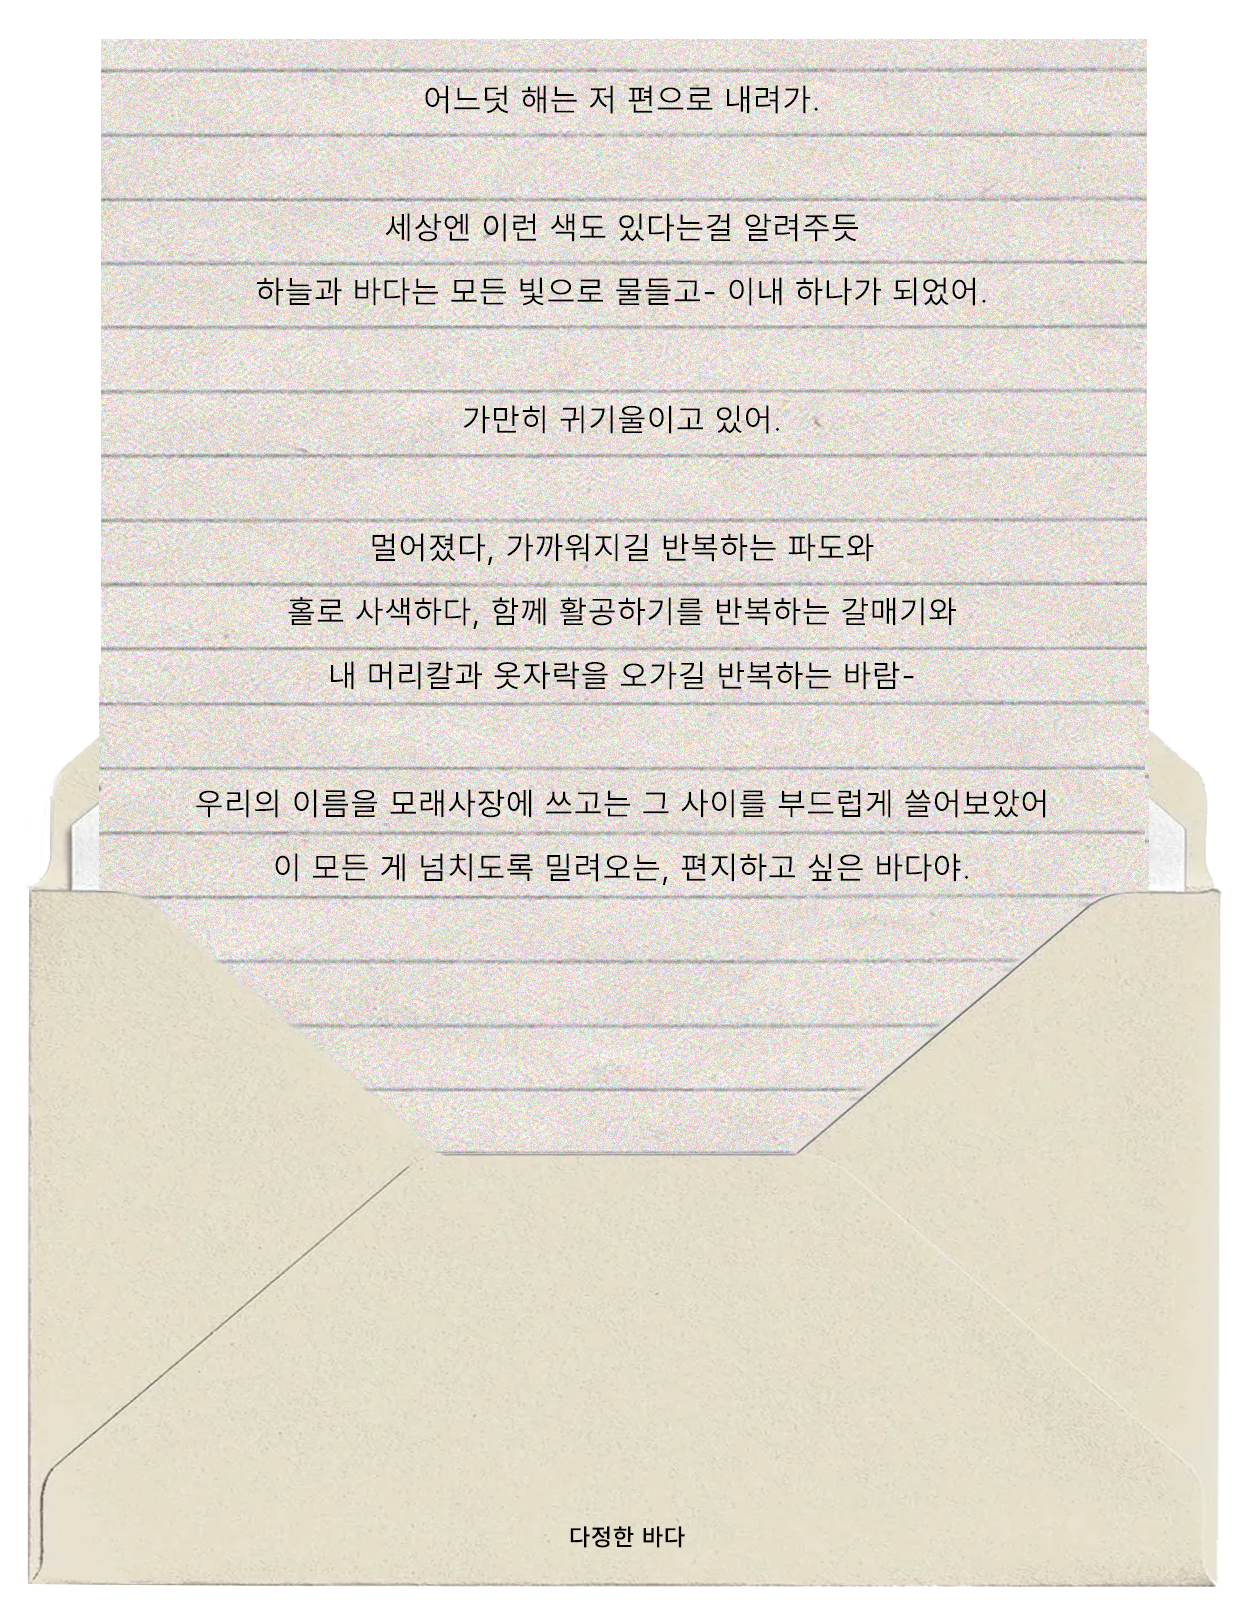 어느덧 해는 저 편으로 내려가.
세상엔 이런 색도 있다는걸 알려주듯
하늘과 바다는 모든 빛으로 물들고- 이내 하나가 되었어.
가만히 귀기울이고 있어.
멀어졌다, 가까워지길 반복하는 파도와
홀로 사색하다, 함께 활공하기를 반복하는 갈매기와
내 머리칼과 옷자락을 오가길 반복하는 바람-
우리의 이름을 모래사장에 쓰고는 그 사이를 부드럽게 쓸어보았어
이 모든 게 넘치도록 밀려오는, 편지하고 싶은 바다야.
다정한 바다